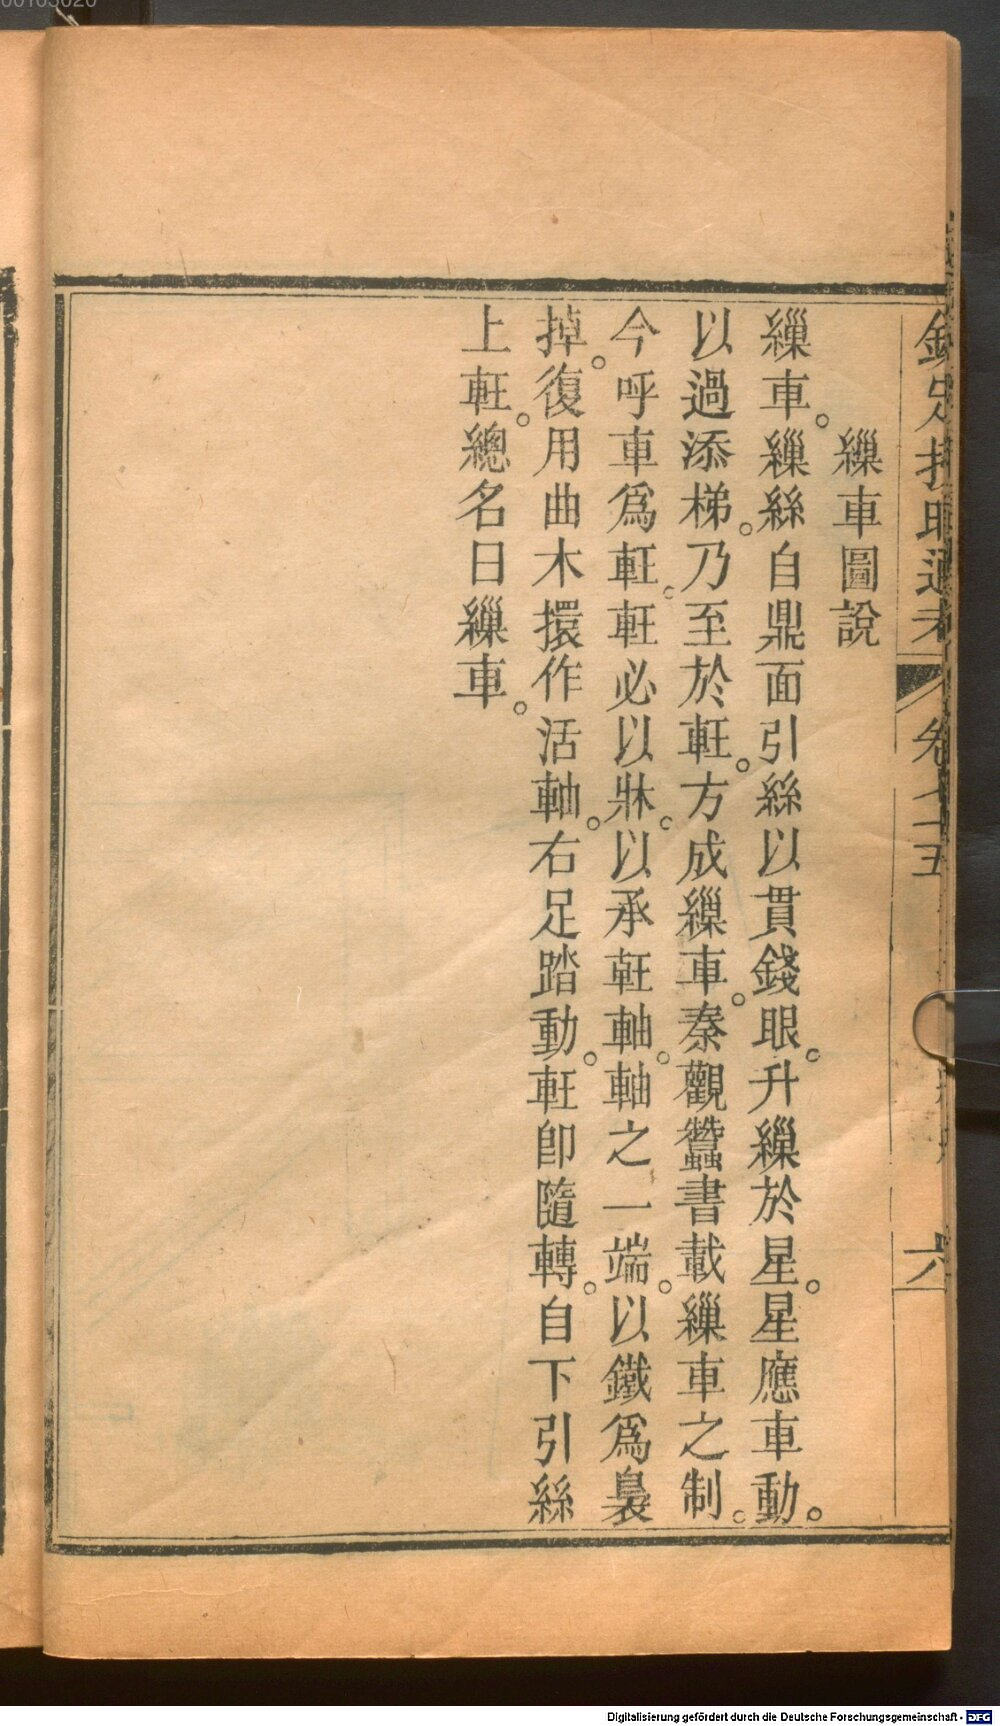 欽定授時通考 卷七十五 六
繅車圖說
繅車。繅絲自鼎面引絲以貫錢眼。升繅於星。星應車動。
以過添梯。乃至於軖。方成繅車。秦觀蠶書載繅車之制。
今呼車爲軖。軖必以牀。以承軖軸。軸之一端。以鐵爲裊
掉。復用曲木擐作活軸。右足踏動。軖卽隨轉。自下引絲
上軖。總名曰繅車。
Digitalisierung gefördert durch die Deutsche Forschungsgemeinschaft - DFG